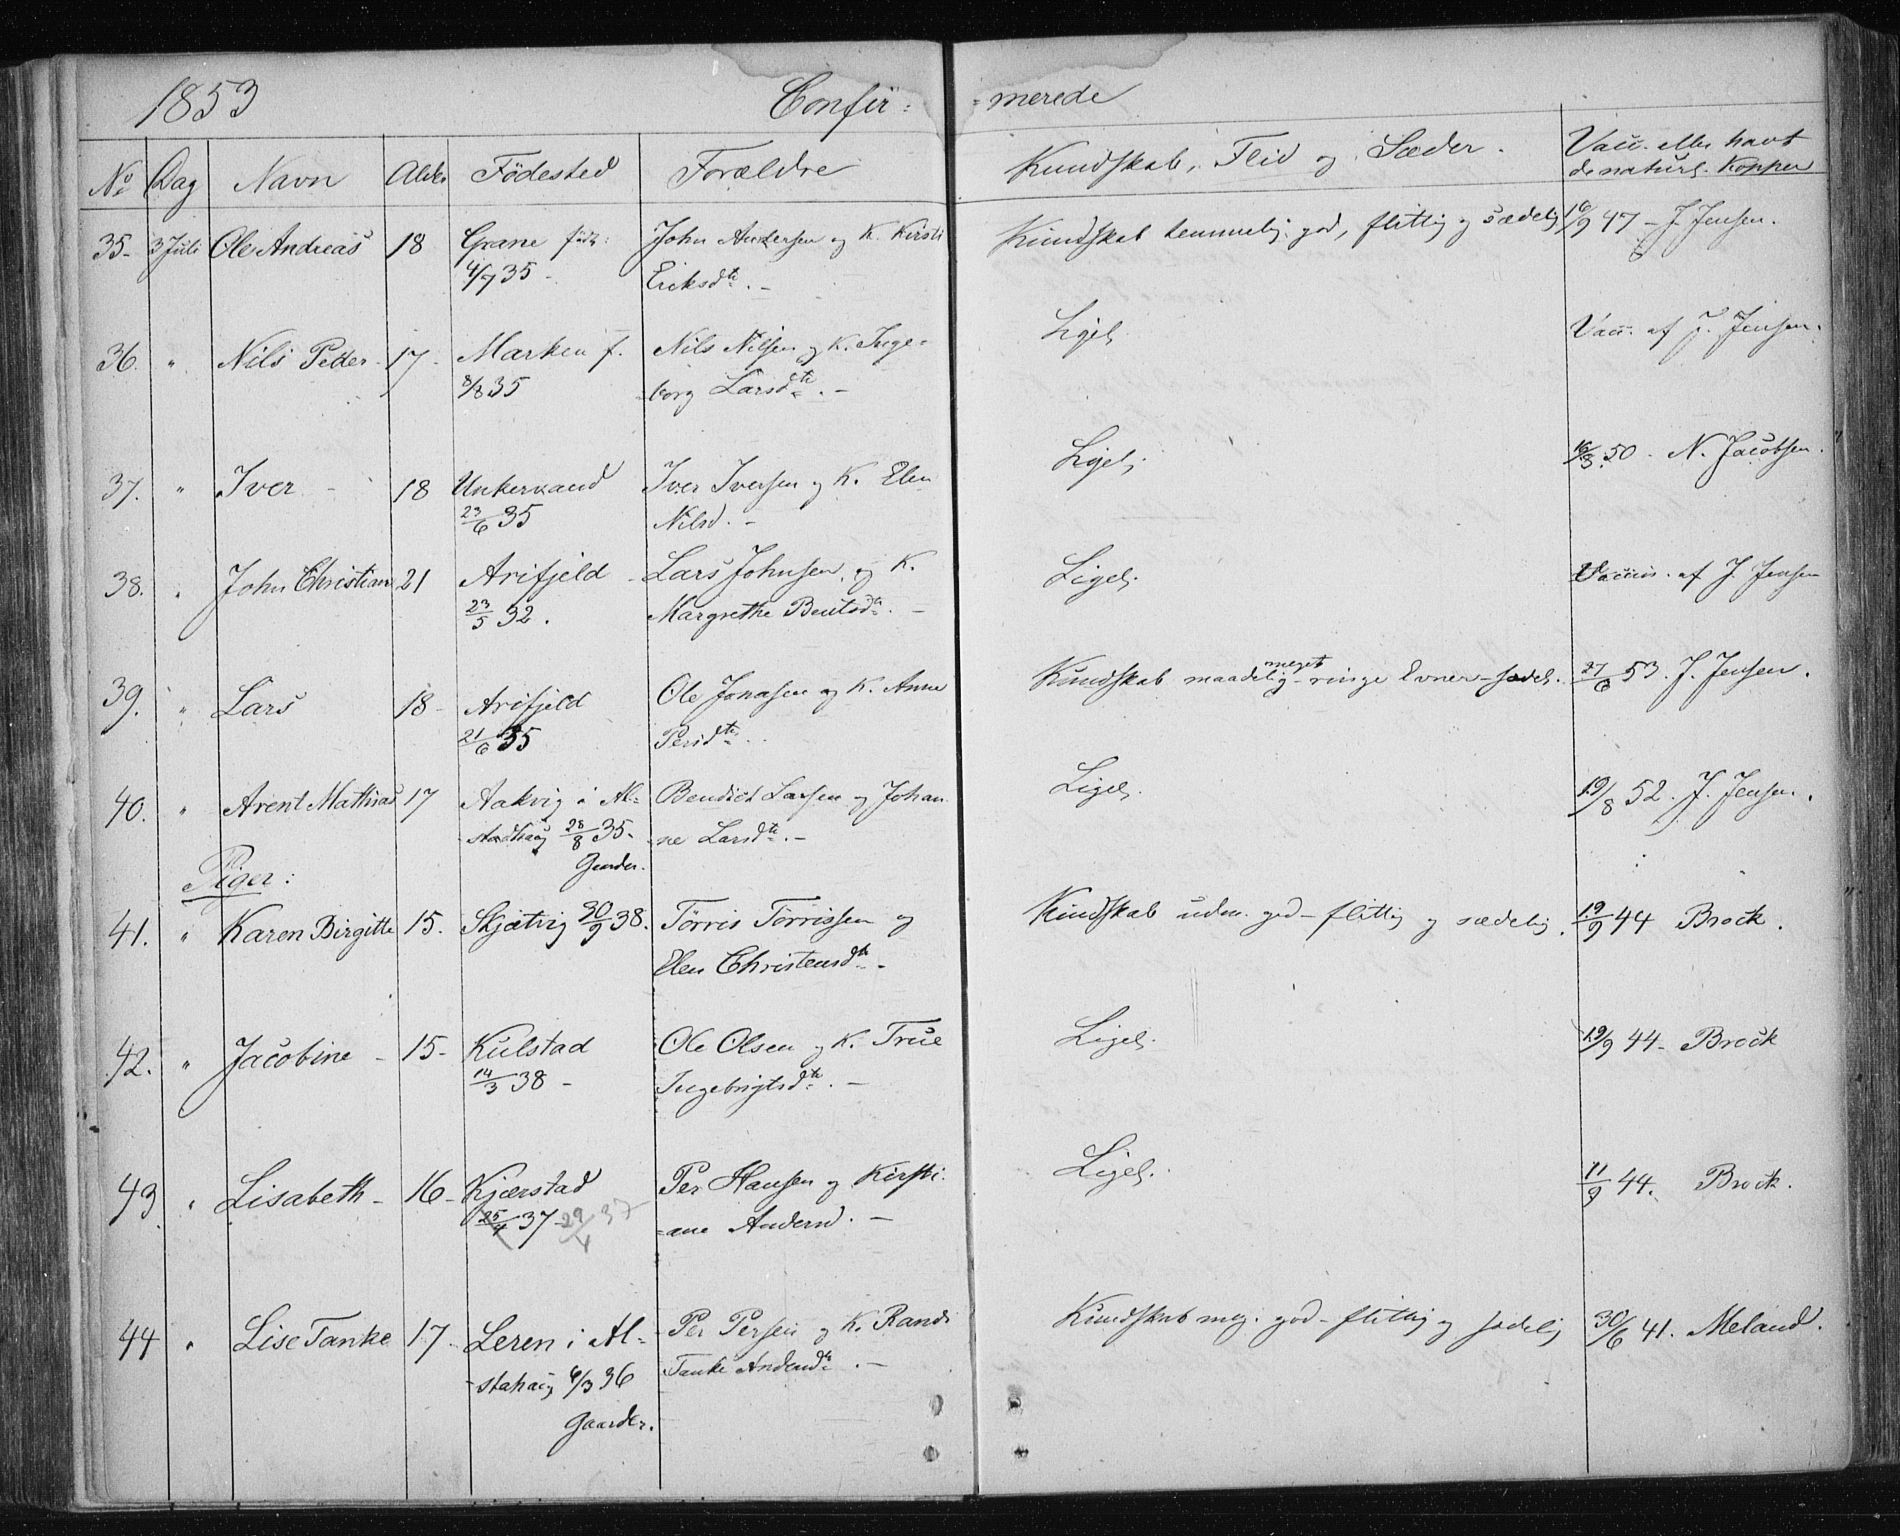 1853 Confir= =merede
No Dag Navn Alder Födested Forældre Kundskab, Flid og Sæder. Vacc. eller havt
de naturl. Kopper
35- 3 Juli Ole Andreas 18 Grane föd: John Andersen og K. Kirsti Kundskab temmelig god, flittig og sædelig 16/9 47 - J. Jensen.
4/7 35 - Eriksdtr. -
36. " Nils Peder 17- Marken f. Nils Nilsen og K. Inge= Ligel. Vacc. af J. Jensen.
8/8 35 =borg Larsdtr. -
37. " Iver - 18 Unkervand Iver Iversen og K. Elen Ligel. 16/3 50 - N. Jacobsen.
23/6 35 Nilsd. -
38. " John Christian 21 Arifjeld Lars Johnsen og K. Ligel. Vaccin. af J. Jensen
23/5 32. Margrethe Bentsdtr. -
39. " Lars 18- Arifjeld Ole Jonasen og K. Anne Kundskab maadelig - meget ringe Evner - sædel. 27/6 53. J. Jensen.
21/6 35 Persdtr.
40. " Arent Mathias 17 Aakvig i Al= Bendict Larsen og Johan Ligel. 19/8 52. J. Jensen.
=stadhaug 28/8 35- =ne Larsdtr. -
Gaarder.
Piger:
41. " Karen Birgitte 15. Skjætvig 30/9 38. Tørris Tørrissen og Kundskab udm. god - flittig og sædelig. 19/9 44 Brock.
Elen Christensdtr. -
42. " Jacobine - 15- Kulstad Ole Olsen og K. True Ligel. 19/9 44- Brock
14/3 38 - Ingebrigtsdtr. -
43 " Lisabeth - 16- Kjærstad Per Hansen og Kirsti= Ligel. 11/9 44. Brock.
25/4 37 29/4 37 =ane Andersd. -
44 " Lise Tanke 17- Leren i Al= Per Persen og K. Randi Kundskab meg. god - flittig og sædelig 30/6 41. Meland.
=stahaug 6/3 36 Tanke Andersdtr. -
Gaarder.